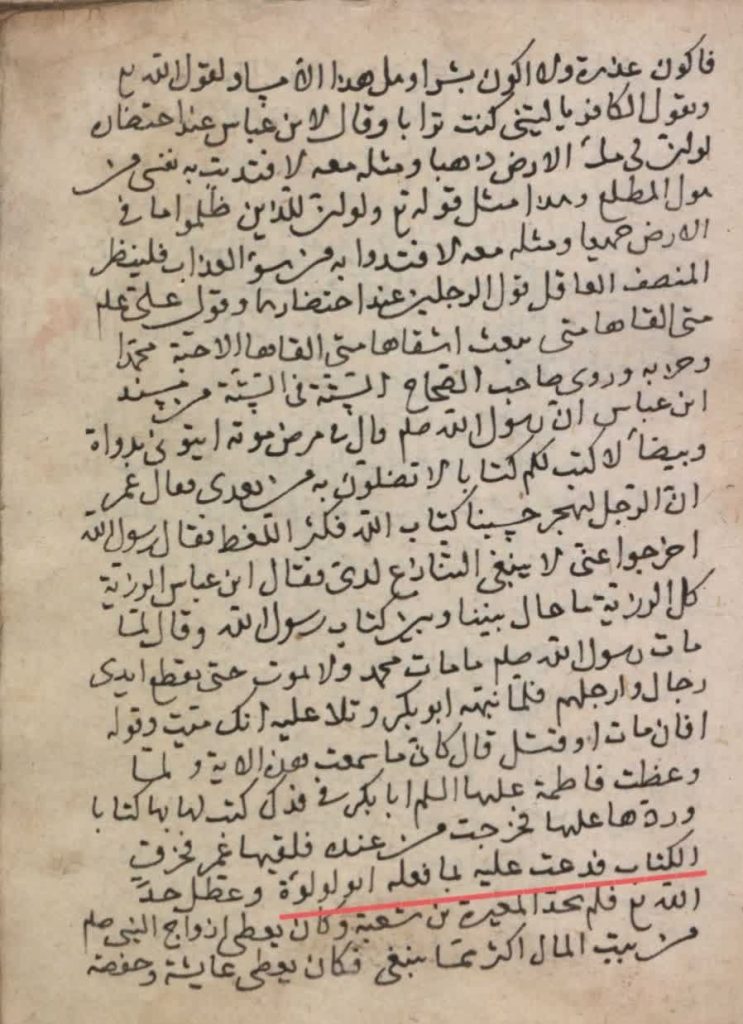 فاكون عذرة ولا اكون بشرا وهل هذا الا مساو لقول الله تع
ويقول الكافر يا ليتني كنت ترابا وقال لابن عباس عند احتضاره
لو ان لي ملأ الارض ذهبا ومثله معه لافتديت به نفسي من
هول المطلع وهذا مثل قوله تع ولو ان للذين ظلموا ما في
الارض جميعا ومثله معه لافتدوا به من سوء العذاب فلينظر
المنصف العاقل قول الرجلين عند احتضارهما وقول علي علم
متى القاها متى يبعث اشقاها متى القا الاحبة محمدا
وحزبه وروى صاحب الصحاح الستة في الستة من مسند
ابن عباس ان رسول الله صلم قال في مرض موته ايتوني بدواة
وبيضاء لاكتب لكم كتابا لا تضلون به من بعدي فقال عمر
ان الرجل ليهجر حسبنا كتاب الله فكثر اللغط فقال رسول الله
اخرجوا عني لا ينبغي التنازع لدي فقال ابن عباس الرزية
كل الرزية ما حال بيننا وبين كتاب رسول الله وقال لما
مات رسول الله صلم ما مات محمد ولا يموت حتى يقطع ايدي
رجال وارجلهم فلما نبهه ابو بكر وتلا عليه انك ميت وقوله
افان مات او قتل قال كاني ما سمعت بهذه الاية ولما
وعظت فاطمة عليها السلم ابا بكر في فدك كتب لها بها كتابا
وردها عليها فخرجت من عنده فلقيها عمر فخرق
الكتاب فدعت عليه بما فعله ابو لولوة وعطل حد
الله تع فلم يحد المغيرة بن شعبة وكان يعطي ازواج النبي صلم
من بيت المال اكثر مما ينبغي فكان يعطي عايشة وحفصة